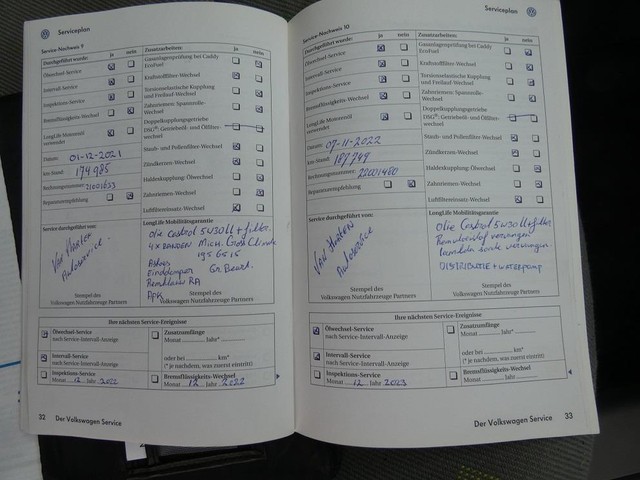 Serviceplan
Service-Nachweis 9
Durchgeführt wurde: ja nein
Ölwechsel-Service
Intervall-Service
Inspektions-Service
Bremsflüssigkeits-Wechsel
LongLife Motorenöl verwendet
Datum: 01-12-2021
km-Stand: 174.985
Rechnungsnummer: 21001633
Reparaturempfehlung
Zusatzarbeiten: ja nein
Gasanlagenprüfung bei Caddy
EcoFuel
Kraftstofffilter-Wechsel
Torsionselastische Kupplung
und Freilauf Wechsel
Zahnriemen- Spannrolle-
Wechsel
Doppelkupplungsgetriebe
DSG®: Getriebeöl- und Ölfilter-
wechsel
Staub- und Pollenfilter-Wechsel
Zündkerzen-Wechsel
Haldexkupplung: Ölwechsel
Zahnriemen-Wechsel
Luftfiltereinsatz-Wechsel
Service durchgeführt von:
Autoservice.
Stempel des
Volkswagen Nutzfahrzeuge Partners
LongLife Mobilitätsgarantie
Olie Castrol 5W30LL + filter.
4x BANDEN Mich. CrossClimate
195 65 15
Einddemper
Remklauw RA
APK
Stempel des
Volkswagen Nutzfahrzeuge Partners
Ihre nächsten Service-Ereignisse
Ölwechsel-Service
nach Service-Intervall-Anzeige
Intervall-Service
nach Service-Intervall-Anzeige
Inspektions-Service
Monat 12 Jahr 2022
Zusatzumfänge
Monat Jahr*
oder bei km*
(* je nachdem, was zuerst eintritt)
Bremsflüssigkeits-Wechsel
Monat 12 Jahr 2022
32 Der Volkswagen Service
Serviceplan
Service-Nachweis 10
Durchgeführt wurde: ja nein
Ölwechsel-Service
Intervall-Service
Inspektions-Service
Bremsflüssigkeits-Wechsel
LongLife Motorenöl
verwendet
Datum: 07-11-2022
km-Stand: 187.749
Rechnungsnummer: 22001460
Reparaturempfehlung
Zusatzarbeiten: ja nein
Gasanlagenprüfung bei Caddy
EcoFuel
Kraftstofffilter-Wechsel
Torsionselastische Kupplung
und Freilauf Wechsel
Zahnriemen- Spannrolle-
Wechsel
Doppelkupplungsgetriebe
DSG®: Getriebeöl- und Ölfilter-
wechsel
Staub- und Pollenfilter-Wechsel
Zündkerzen-Wechsel
Haldexkupplung: Ölwechsel
Zahnriemen-Wechsel
Luftfiltereinsatz-Wechsel
Service durchgeführt von:
Autoservice
Stempel des
Volkswagen Nutzfahrzeuge Partners
LongLife Mobilitätsgarantie
Olie Castrol 5W30LL + filter.
Remvloeistof vervangen
lambda sonde vervangen.
DISTRIBUTIE + WATERPOMP
Stempel des
Volkswagen Nutzfahrzeuge Partners
Ihre nächsten Service-Ereignisse
Ölwechsel-Service
nach Service-Intervall-Anzeige
Intervall-Service
nach Service-Intervall-Anzeige
Inspektions-Service
Monat 12 Jahr 2023
Zusatzumfänge
Monat Jahr*
oder bei km*
(* je nachdem, was zuerst eintritt)
Bremsflüssigkeits-Wechsel
Monat Jahr
Der Volkswagen Service 33